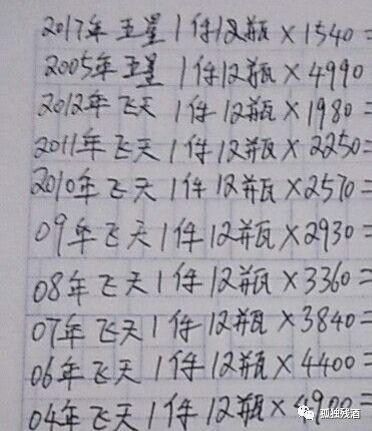 2017年五星1件12瓶×1540=
2005年五星1件12瓶×4990
2012年飞天1件12瓶×1980=
2011年飞天1件12瓶×2250=
2010年飞天1件12瓶×2570=
09年飞天1件12瓶×2930=
08年飞天1件12瓶×3360=
07年飞天1件12瓶×3840=
06年飞天1件12瓶×4400=
04年飞天1件12瓶×4900=
孤独残酒